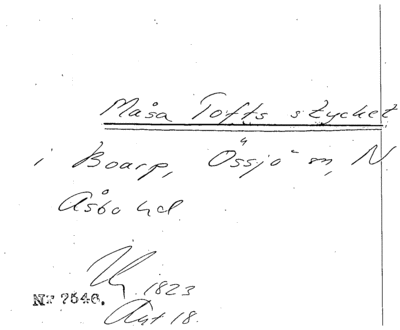 Måsa Tofts stycket
i Boarp, Össjö sn, N
Åsbo hd
1823
Akt 18.